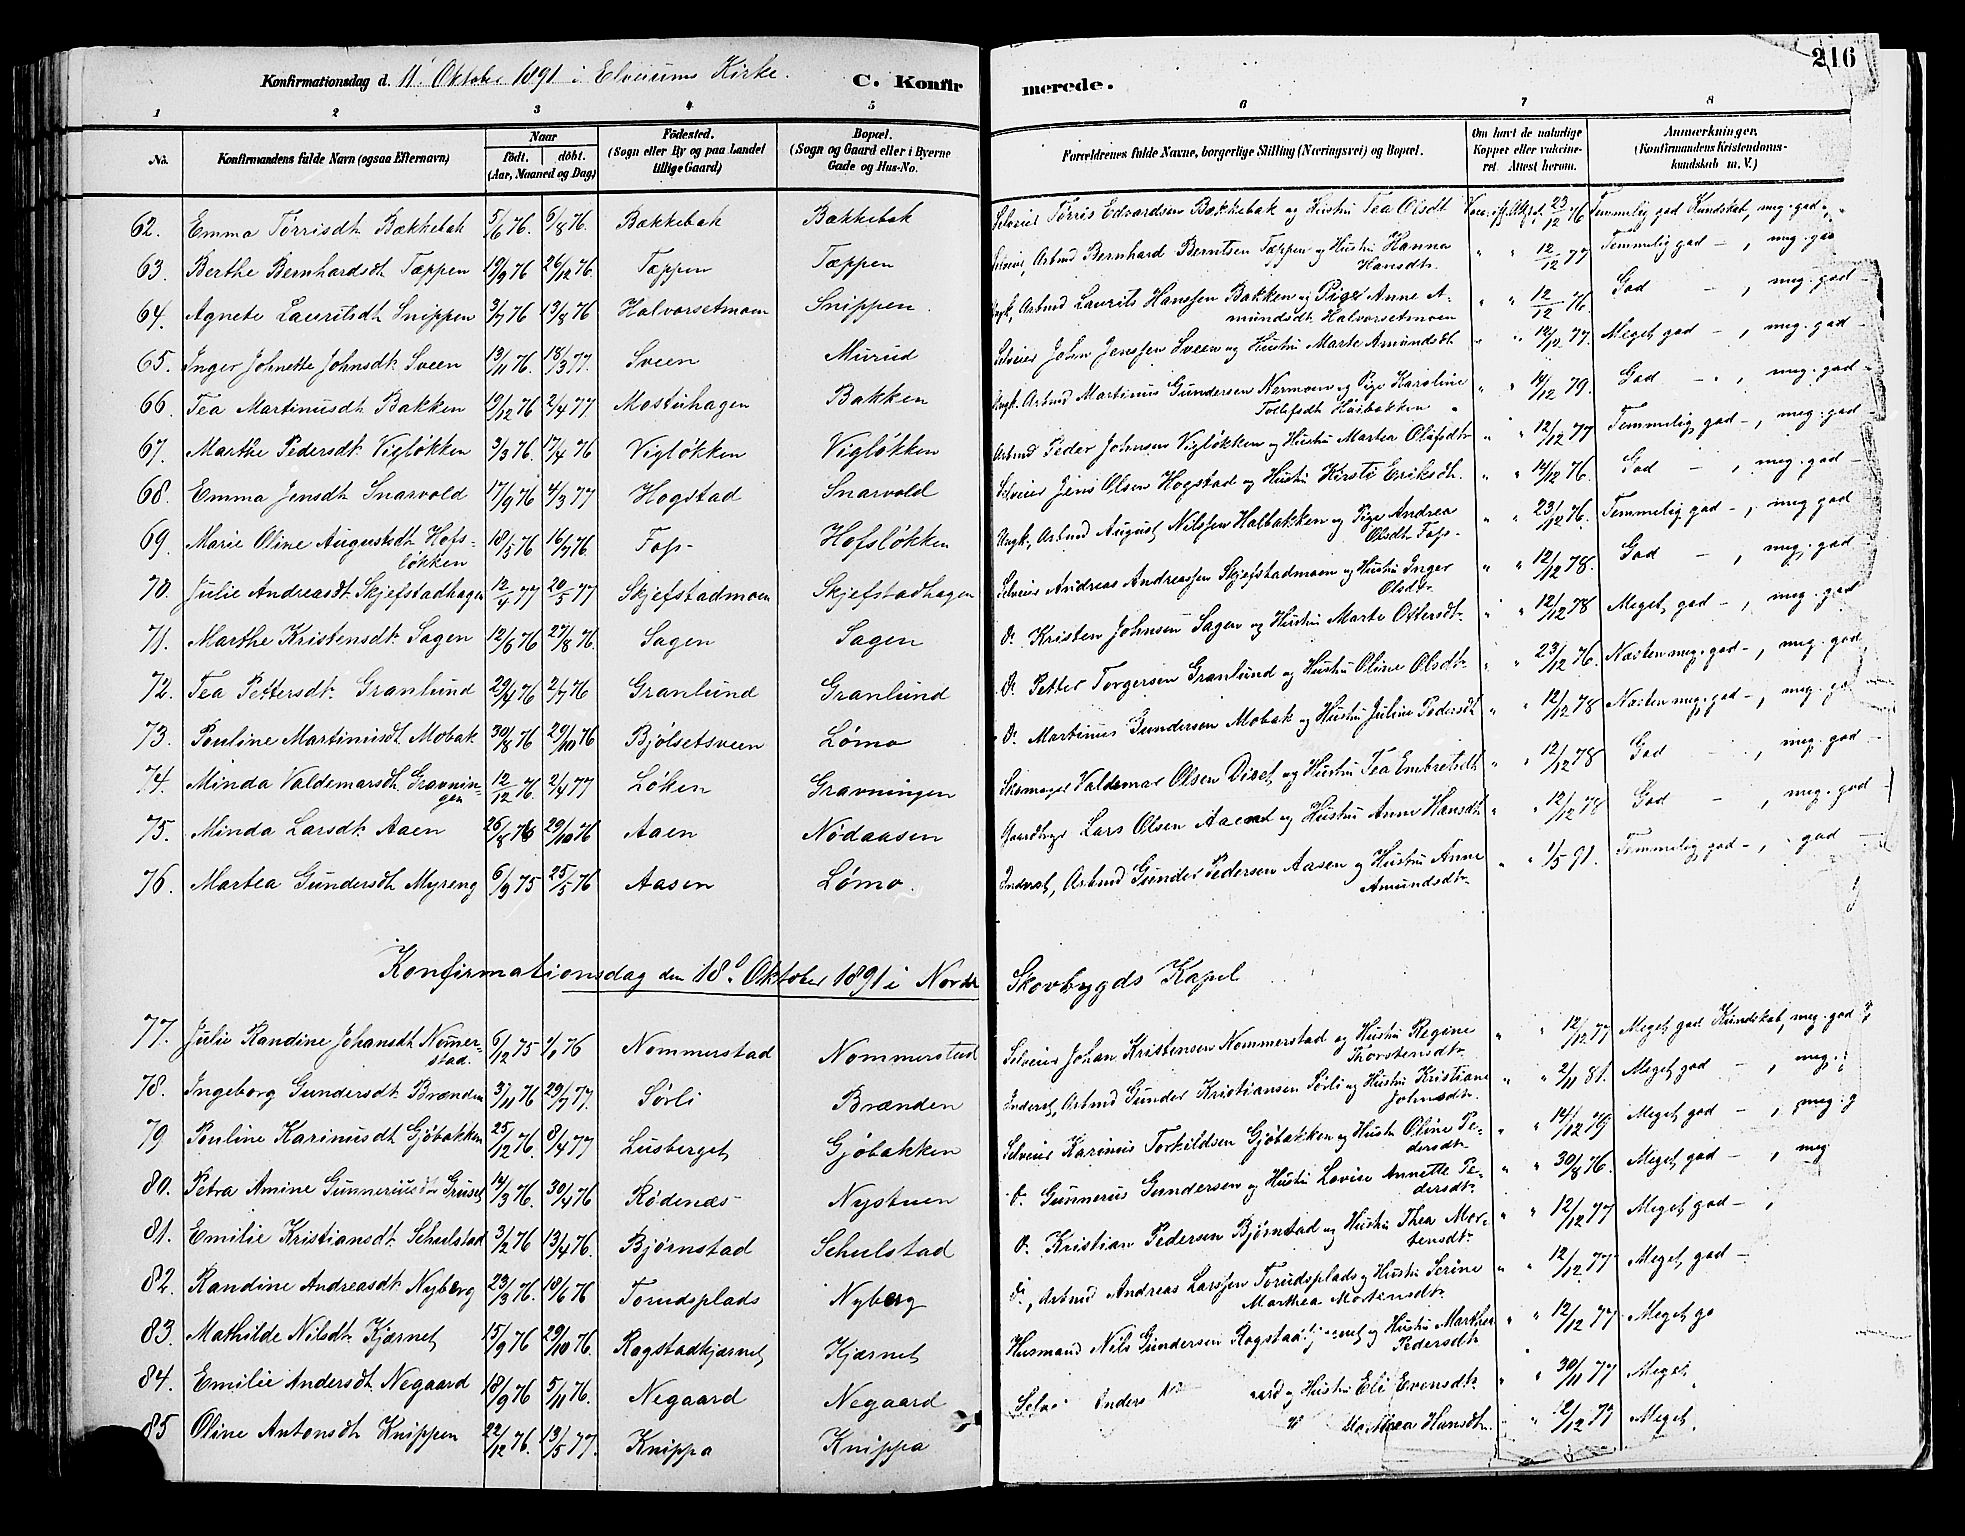 216
Konfirmationsdag d. 11' Oktober 1891 i Elverums Kirke. C. Konfirmerede.
1 2 3 4 5 6 7 8
No. Konfirmandens fulde Navn (ogsaa Efternavn) Naar født. døbt. (Aar, Maaned og Dag) Fødested. (Sogn eller By og paa Landet tillige Gaard) Bopæl. (Sogn og Gaard eller i Byerne Gade og Hus-No. Forældrenes fulde Navne, borgerlige Stilling (Næringsvei) og Bopæl. Om havt de naturlige Kopper eller vakcineret. Attest herom. Anmerkninger. (Konfirmandens Kristendomskundskab m. V.)
62. Emma Tørrisdt. Bækkebak 5/6 76. 6/8 76. Bækkebak Bækkebak Selveier Tørris Edvardsen Bækkebak og Hustru Tea Olsdt 23/12 76 Temmelig god Kundskab, meg. god
63. Berthe Bernhardsdt Tæppen 19/9 76 26/12 76. Tæppen Tæppen Selveier, Arbmd Bernhard Berntsen Tæppen og Hustru Hanna Hansdt. " " 12/12 77 Temmelig god - , meg. go
64. Agnete Lauritsdt Snippen 3/7 76 13/8 76 Halvorsetmoen Snippen. Ungk, Arbmd Laurits Hanssen Bakken og Pige Anne Amundsdt Halvorsetmoen " " 12/12 76. God - , meg. god -
65. Inger Johnette Johnsdt Sveen 13/11 76. 18/3 77. Sveen Murud Selveier John Jenssen Sveen og Hustru Marte Amundsdt " " 12/12 77. Meget god - , meg. god -
66. Tea Martinusdt Bakken 19/12 76 2/4 77 Mostuhagen Bakken Ungk. Arbmd Martinus Gundersen Nermoen og Pige Karoline Tollefsdt Husbakken " " 14/12 79. God - , meg. god -
67. Marthe Pedersdt Vigløkken 3/3 76 17/4 76 Vigløkken Vigløkken Arbmd Peder Johnsen Vigløkken og Hustru Martea Olafsdt " " 12/12 77 Temmelig god - , meg. god -
68. Emma Jensdt Snarvold 17/9 76 4/3 77 Hogstad Snarvold Selveier Jens Olsen Hogstad og Hustru Kirsti Eriksdt. " " 14/12 76. God - , meg. god -
69. Marie Oline Augustsdt Hofsløkken 18/5 76 16/7 76. Fos- Hofsløkken Ungk, Arbmd August Nilssen Halbakken og Pige Andrea Olsdt Fos- " " 23/12 76. Temmelig god - , meg. god
70. Julie Andreasdt. Skjefstadhagen 12/4 77 20/5 77 Skjefstadmoen Skjefstadhagen Selveier Andreas Andreassen Skjefstadmoen og Hustru Inger Olsdt. " " 12/12 78. God - , meg. god
71. Marthe Kristensdt. Sagen 12/6 76 27/8 76. Sagen Sagen Do. Kristen Johnsen Sagen og Hustru Marte Ottersdt. " " 12/12 78 Meget god - , meg. god
72. Tea Pettersdt. Granlund 29/4 76 2/7 76 Granlund Granlund Do. Petter Torgersen Granlund og Hustru Oline Olsdt. " " 23/12 76. Næsten meg. god - , meg. god
73. Pauline Martinusdt Mobak 30/8 76 29/10 76 Bjølsetsveen Lømo Do. Martinus Gundersen Mobak og Hustru Juline Pedersdt " " 12/12 78 Næsten meg. god - , meg. go
74. Minda Valdemarsdt Gravningen 12/12 76. 2/4 77 Løken Gravningen Skomager Valdemar Olsen Diset og Hustru Tea Embretsdt " " 12/12 78 God - , meg. god -
75. Minda Larsdt Aaen 26/8 76 29/10 76 Aaen Nødaasen Gaardbrgr Lars Olsen Aaen og Hustru Anne Hansdt " " 12/12 78 God - , meg. god -
76. Martea Gundersdt Myreng 6/9 75 25/5 76 Aasen Lømo. Inderst, Arbmd Gunder Pedersen Aasen og Hustru Anne Amundsdt. " " 1/5 91. Temmelig god - , - god -
Konfirmationsdag den 18de Oktober 1891 i Nordre Skovbygds Kapel
77. Julie Randine Johansdt Nommerstad. 6/12 75 76 Nommerstad Nommerstad Selveier Johan Kristensen Nommerstad og Hustru Regine Thorstensdt. " " 12/12 77 Meget god Kundskab, meg. god
78. Ingeborg Gundersdt. Brænden 3/11 76 29/7 77. Sørli Brænden Inderst, Arbmd Gunder Kristiansen Sørli og Hustru Kristiane Johnsdt. " " 2/11 81. Meget god - , meg.
79 Pauline Karinusdt Gjøbakken 25/12 76. 8/4 77 Lusberget Gjøbakken Selveier Karinus Torkildsen Gjøbakken og Hustru Oline Pedersdt. " " 14/12 79 Meget god - , meg. g
80. Petra Amine Gunneriusdt Gruset 14/3 76. 30/4 76 Rødenæs- Nystuen Do. Gunnerus Gundersen og Hustru Lovise Annette Pedersdt. " " 30/8 76. Meget god - , meg
81. Emilie Kristiansdt Schulstad 3/2 76 13/4 76. Bjørnstad Schulstad Do. Kristian Pedersen Bjørnstad og Hustru Thea Mortensdt. " " 12/12 77 Meget god - ,
82. Randine Andreasdt. Nyberg 23/3 76. 18/6 76 Torudsplads Nyberg Do., Arbmd Andreas Larssen Torudsplads og Hustru Serine Marthea Mortensdt. " " 12/12 77 Meget god -
83. Mathilde Nilsdt. Kjærnet 15/9 76 29/10 76. Rogstadkjærnet Kjærnet Husmand Nils Gundersen Rogstad og Hustru Marthea Pedersdt " " 12/12 77 Meget go
84. Emilie Andersdt Negaard 18/9 76 5/11 76. Negaard Negaard Anders aard og Hustru Eli Evensdt. " " 30/11 77 Meget
85 Oline Antonsdt Knippen 22/12 76. 13/5 77. Knippa Knippa Hansdt. " " 12/12 77 Meget